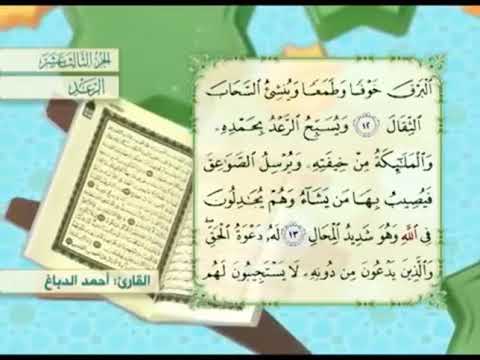 الجزء الثالث عشر
الرعد
الْبَرْقَ خَوْفًا وَطَمَعًا وَيُنشِئُ السَّحَابَ
الثِّقَالَ ١٢ وَيُسَبِّحُ الرَّعْدُ بِحَمْدِهِۦ
وَالْمَلَٰٓئِكَةُ مِنْ خِيفَتِهِۦ وَيُرْسِلُ الصَّوَٰعِقَ
فَيُصِيبُ بِهَا مَن يَشَآءُ وَهُمْ يُجَٰدِلُونَ
فِي اللَّهِ وَهُوَ شَدِيدُ الْمِحَالِ ١٣ لَهُۥ دَعْوَةُ الْحَقِّ ۖ
وَالَّذِينَ يَدْعُونَ مِن دُونِهِۦ لَا يَسْتَجِيبُونَ لَهُم
القارئ: أحمد الدباغ